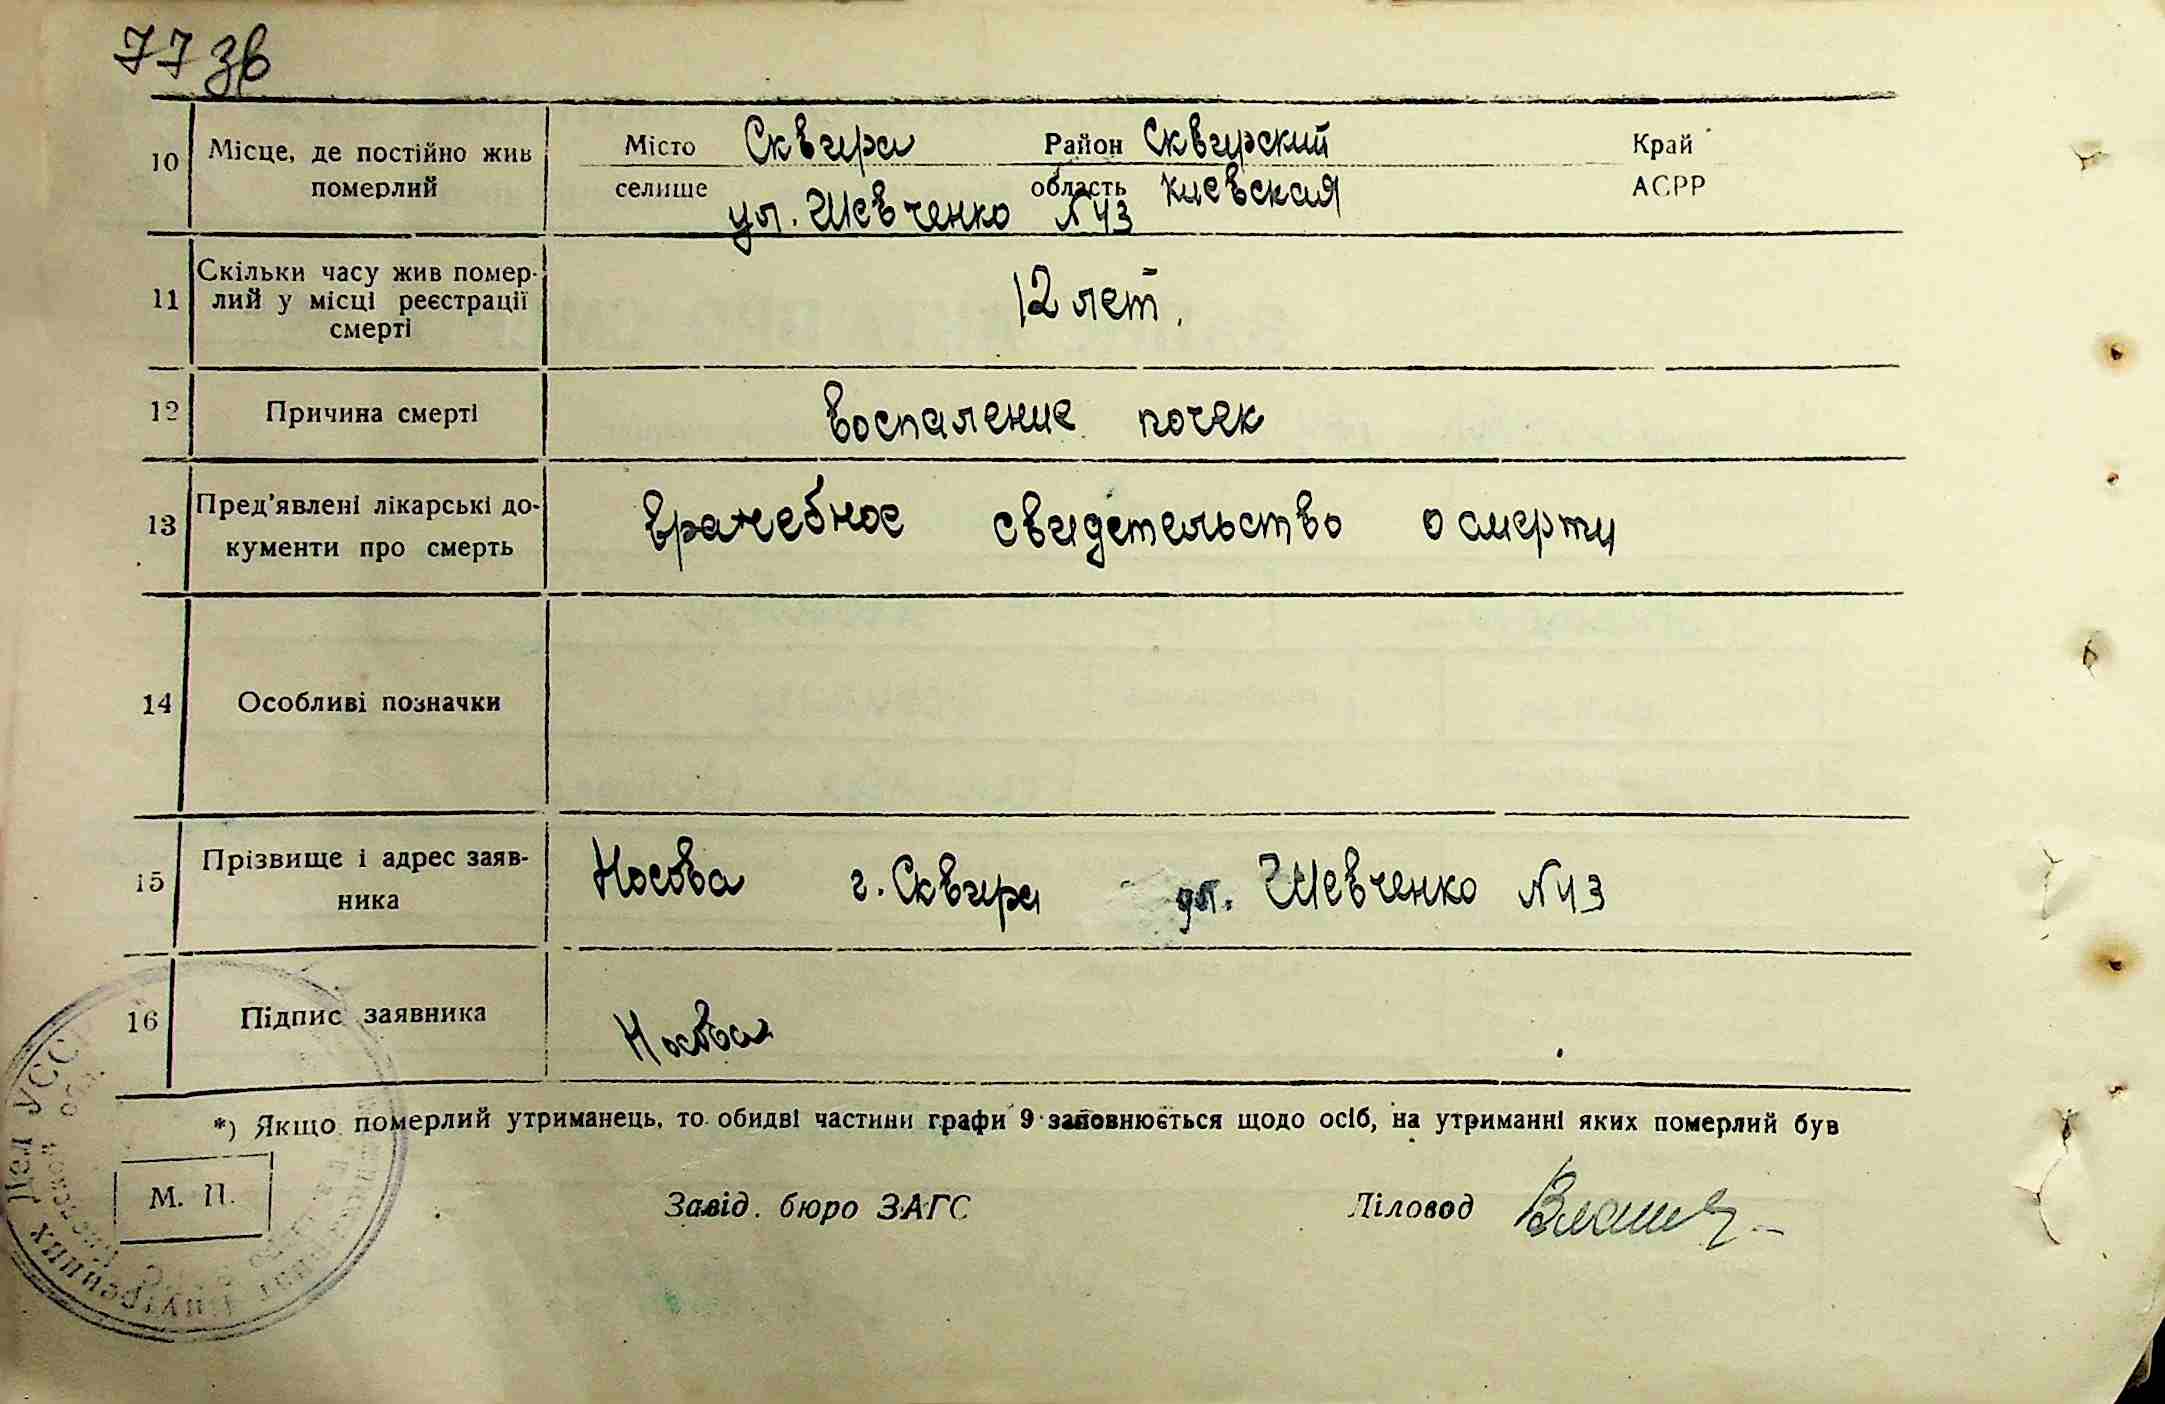 77 зв
10 Місце, де постійно жив померлий
Місто Сквира Район Сквирский Край
селище область Киевская АСРР
ул. Шевченко №43
11 Скільки часу жив помер-
лий у місці реєстрації
смерті
12 лет.
12 Причина смерті воспаление почек
13 Пред'явлені лікарські до-
кументи про смерть
врачебное свидетельство о смерти
14 Особливі позначки
15 Прізвище і адрес заяв-
ника
Носова г. Сквира ул. Шевченко №43
16 Підпис заявника Носова
*) Якщо померлий утриманець, то обидві частини графи 9 заповнюється щодо осіб, на утриманні яких померлий був
М. П. Завід. бюро ЗАГС Діловод
УССР
Внутренних Дел